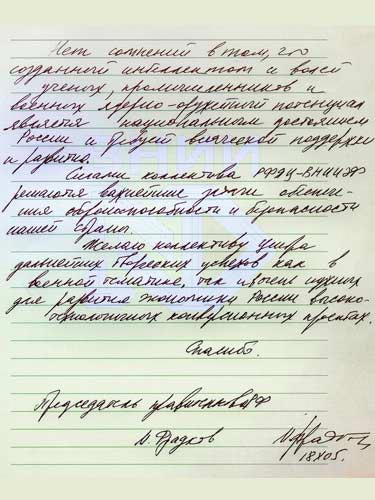 Нет сомнений в том, что
созданный интеллектом и волей
учёных, промышленников и
военных ядерно-оружейный потенциал
является национальным достоянием
России и требует всяческой поддержки
и развития.
Силами коллектива РФЯЦ-ВНИИЭФ
решаются важнейшие задачи обеспече-
ния обороноспособности и безопасности
нашей страны.
Желаю коллективу центра
дальнейших творческих успехов как в
военной тематике, так и очень нужных
для развития экономики России высоко-
технологичных конверсионных проектах.
Спасибо.
Председатель правительства РФ
М. Фрадков
18.X.05.